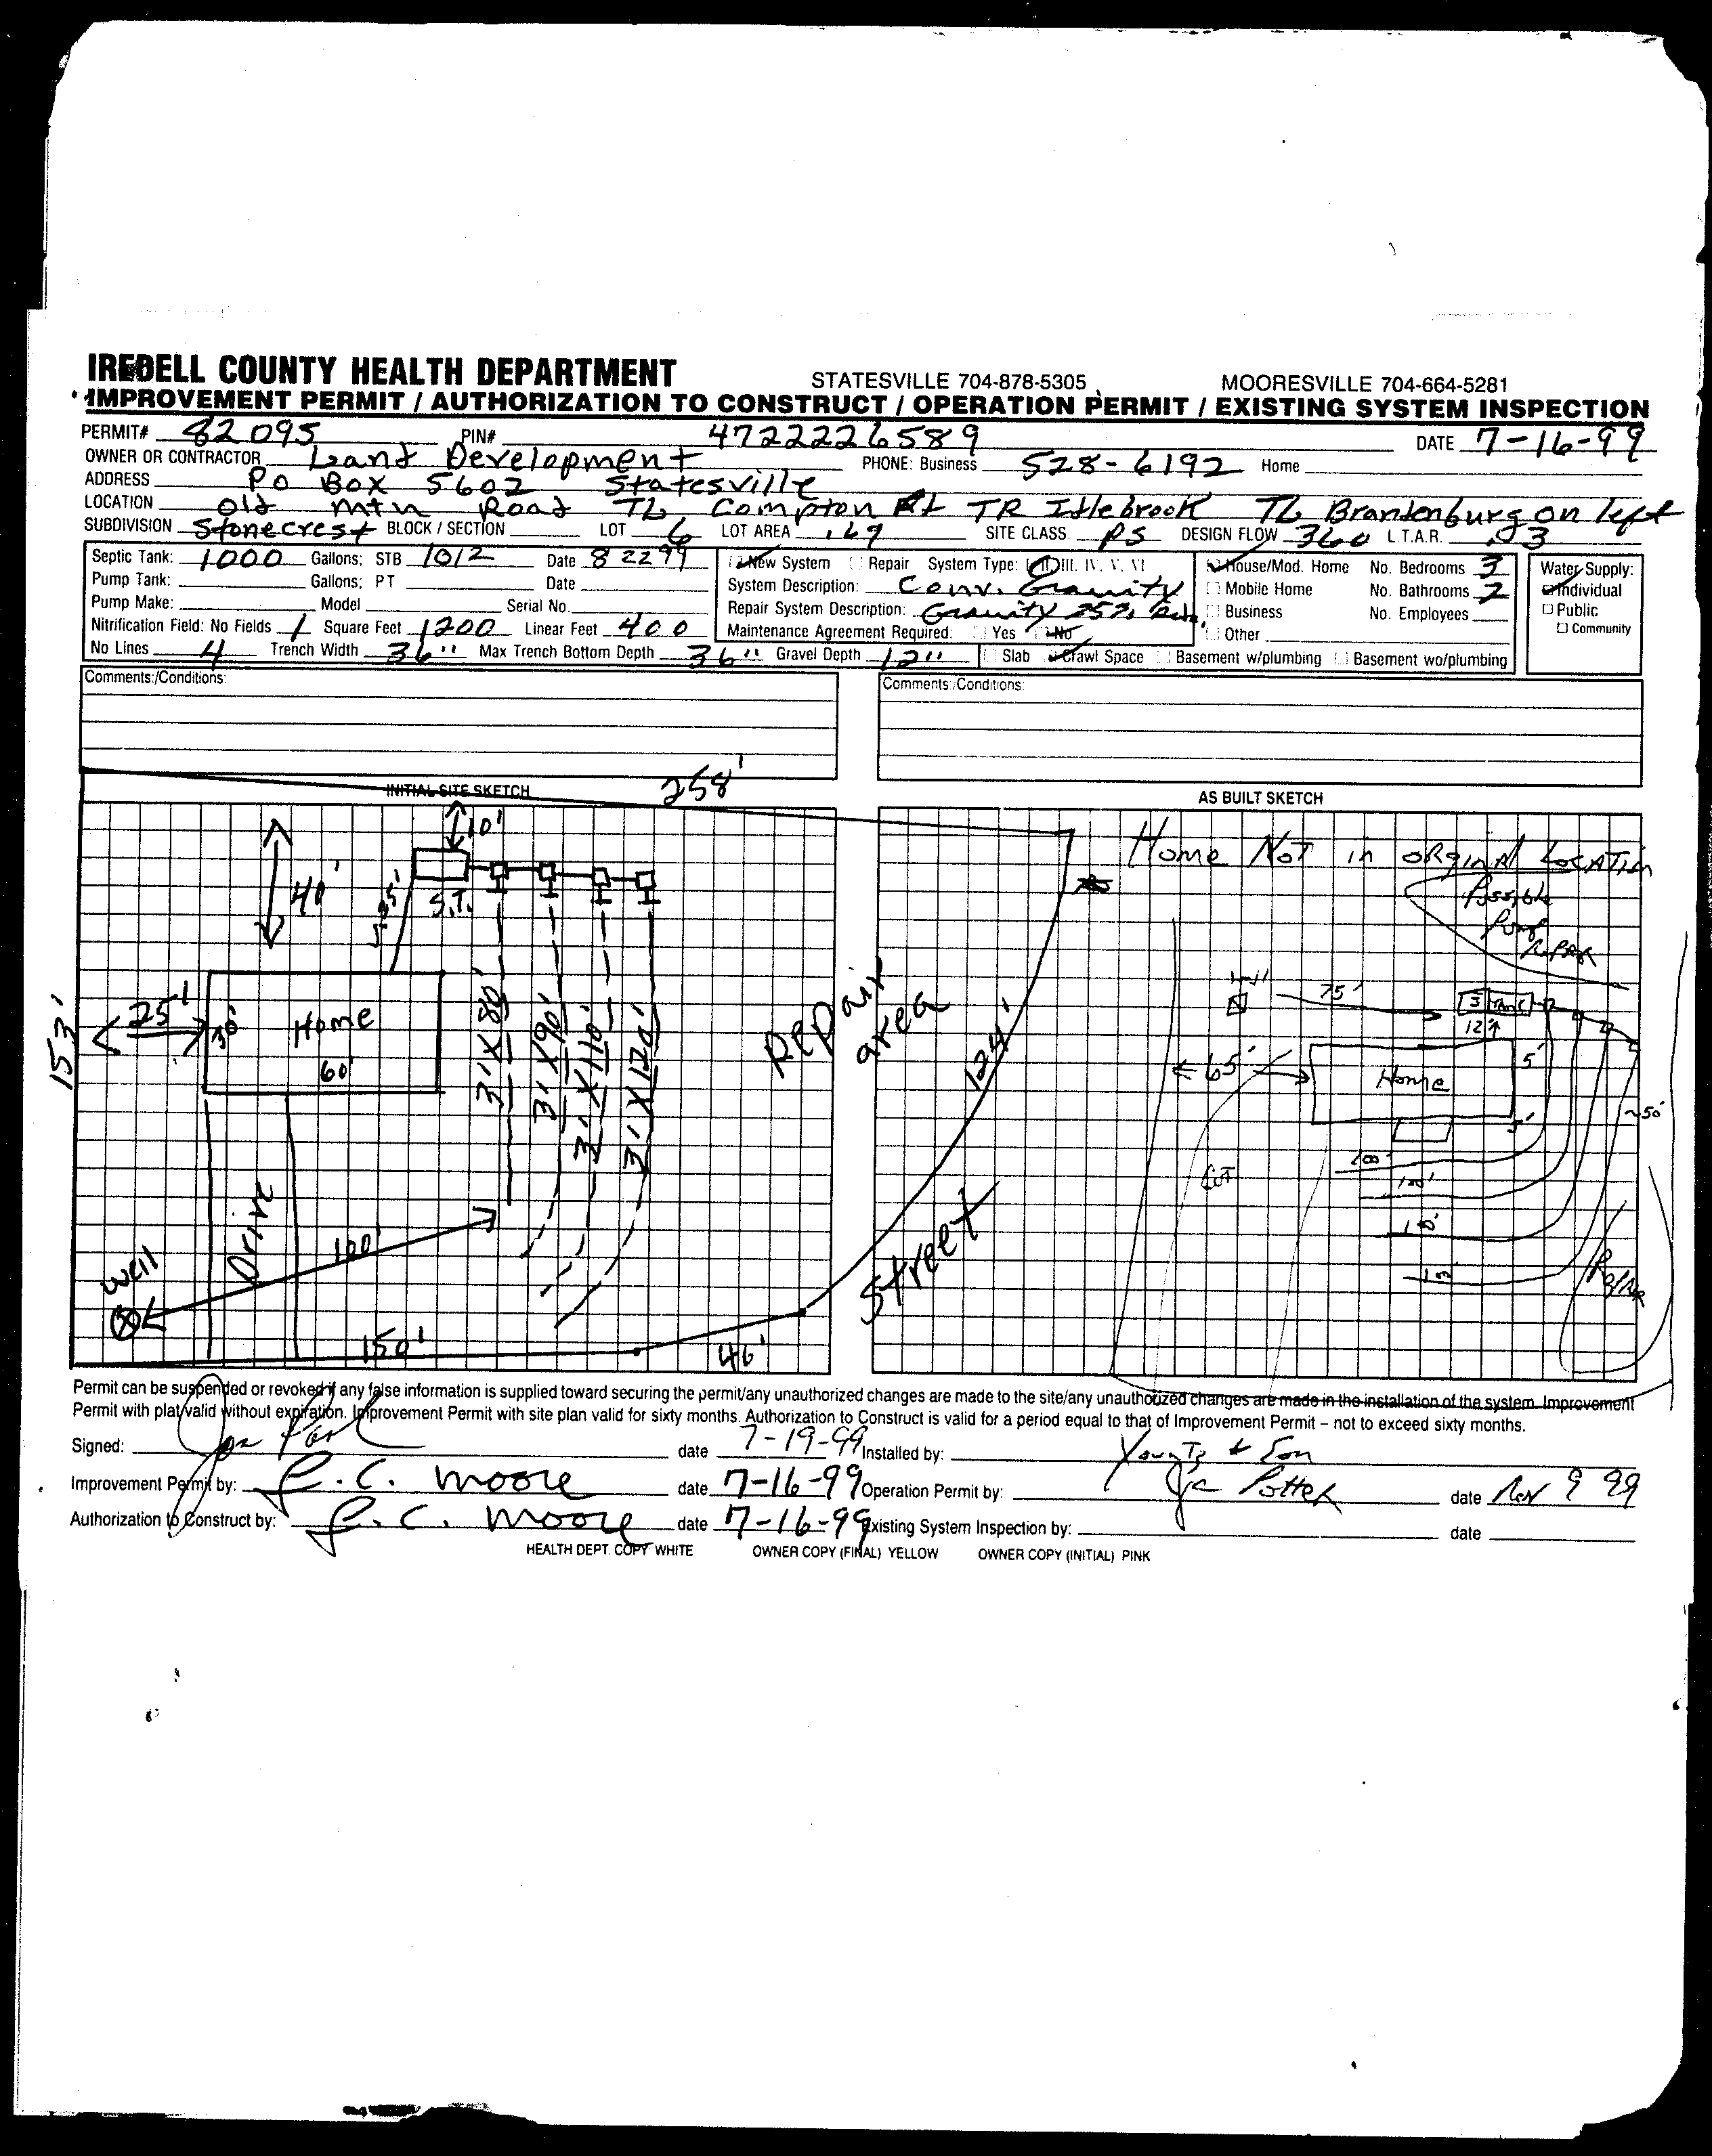 IREDELL COUNTY HEALTH DEPARTMENT STATESVILLE 704-878-5305 MOORESVILLE 704-664-5281
IMPROVEMENT PERMIT / AUTHORIZATION TO CONSTRUCT / OPERATION PERMIT / EXISTING SYSTEM INSPECTION
PERMIT# 82095 PIN# 4722226589 DATE 7-16-99
OWNER OR CONTRACTOR Land Development PHONE: Business 528-6192 Home
ADDRESS PO Box 5602 Statesville
LOCATION Old Mtn Road TL Compton Rd TR Idlebrook TL Brandenburg on left
SUBDIVISION Stonecrest BLOCK / SECTION LOT 6 LOT AREA .69 SITE CLASS. PS DESIGN FLOW 360 L.T.A.R. .03
Septic Tank: 1000 Gallons; STB 1012 Date 8 22 99 New System Repair System Type: I, II, III, IV, V, VI House/Mod. Home No. Bedrooms 3 Water Supply:
Pump Tank: Gallons; PT Date System Description: Conv. Gravity Mobile Home No. Bathrooms 2 Individual
Pump Make: Model Serial No. Repair System Description: Gravity 25% Business No. Employees Public
Nitrification Field: No Fields 1 Square Feet 1200 Linear Feet 400 Maintenance Agreement Required: Yes No Other Community
No Lines 4 Trench Width 36" Max Trench Bottom Depth 36" Gravel Depth 12" Slab Crawl Space Basement w/plumbing Basement wo/plumbing
Comments:/Conditions: Comments:/Conditions:
258'
INITIAL SITE SKETCH AS BUILT SKETCH
10'
40'
S.T.
25'
153'
30'
Home
60'
3'X80'
3'X90'
3'X110'
3'X120'
Repair area
124'
Street
Drive
100'
Well
150'
46'
Home Not in orginal Location
Possible
Pump
Repair
Well
75'
S Tank
12'
65'
Home
5'
5'
~50'
100'
100'
100'
100'
Repair
Permit can be suspended or revoked if any false information is supplied toward securing the permit/any unauthorized changes are made to the site/any unauthorized changes are made in the installation of the system. Improvement
Permit with plat valid without expiration. Improvement Permit with site plan valid for sixty months. Authorization to Construct is valid for a period equal to that of Improvement Permit – not to exceed sixty months.
Signed: date 7-19-99 Installed by: Younts & Son
Improvement Permit by: R.C. Moore date 7-16-99 Operation Permit by: Potter date Nov 9 99
Authorization to Construct by: R.C. Moore date 7-16-99 Existing System Inspection by: date
HEALTH DEPT. COPY WHITE OWNER COPY (FINAL) YELLOW OWNER COPY (INITIAL) PINK